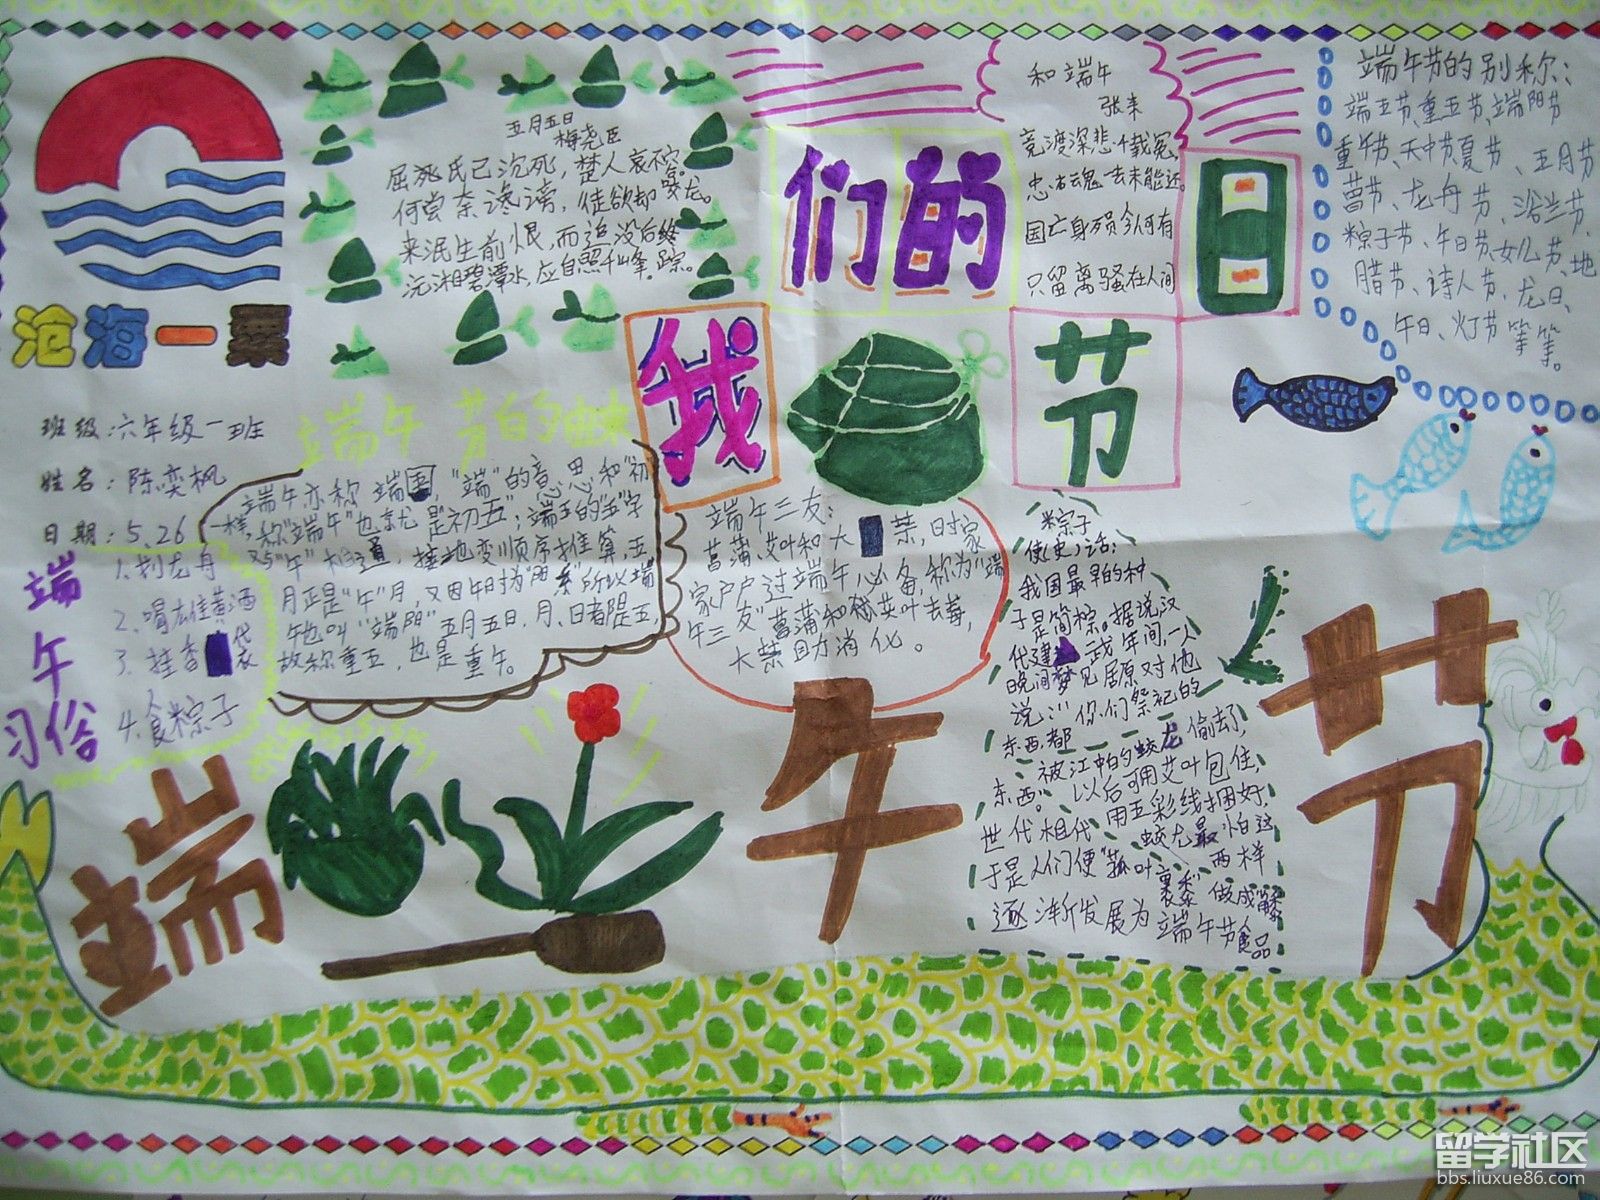 沧海一粟
班级:六年级一班
姓名:陈奕枫
日期:5.26
五月五日
梅尧臣
屈死氏已沉死,楚人哀不容。
何尝奈谗谤,徒欲却蛟龙。
来泯生前恨,而追没后踪
沅湘碧潭水,应自照千峰。踪。
我们的节日
和端午
张耒
竞渡深悲千载冤,
忠魂一去未能还。
国亡身殒今何有
只留离骚在人间
端午节的别称:
端五节、重五节、端阳节
重午节、天中节、夏节、五月节
菖节、龙舟节、浴兰节、
粽子节、午日节、女儿节、地
腊节、诗人节、龙日、
午日、灯节等等。
端午节的由来
端午亦称端五,"端"的意思和"初"
一样,称"端午"也就是初五;端五的"五"字
又与"午"相通,按地支顺序推算,五
月正是"午"月,又因午时为"阳辰"所以端
午也叫"端阳"五月五日,月、日都是五,
故称重五,也是重午。
端午三友:
菖蒲、艾叶和大蒜,时家
家户户过端午必备,称为"端
午三友"菖蒲和艾叶去莓,
大蒜助消化。
端午习俗
1.划龙舟
2、喝雄黄酒
3、挂香袋
4.食粽子
粽子
使(史)话:
我国最早的种
子是筒粽。据说汉
代建武年间,一人
晚间梦见屈原对他
说:"你们祭祀的
东西都
被江中的蛟龙偷去了
东西。以后可用艾叶包住,
用五彩线捆好,
世代相代
蛟龙最怕这
于是人们便"菰叶裹黍"
两样
做成
逐渐发展为端午节食品
端午节
留学社区
bbs.liuxue86.com